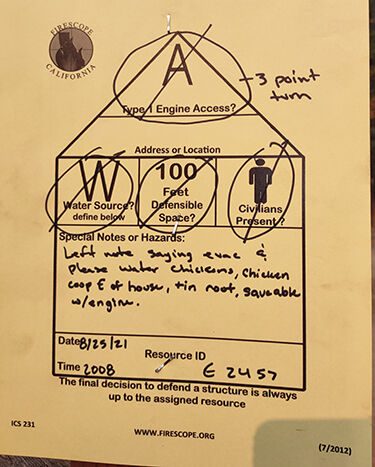 FIRESCOPE
CALIFORNIA
A
- 3 point
turn
Type 1 Engine Access?
Address or Location
W
Water Source?
define below
100
Feet
Defensible
Space?
Civilians
Present?
Special Notes or Hazards:
Left note saying evac &
please water chickens, chicken
coop E of house, tin roof, saveable
w/engine.
Date 8/25/21
Resource ID
Time 2008
E 2457
The final decision to defend a structure is always
up to the assigned resource
ICS 231
WWW.FIRESCOPE.ORG
(7/2012)